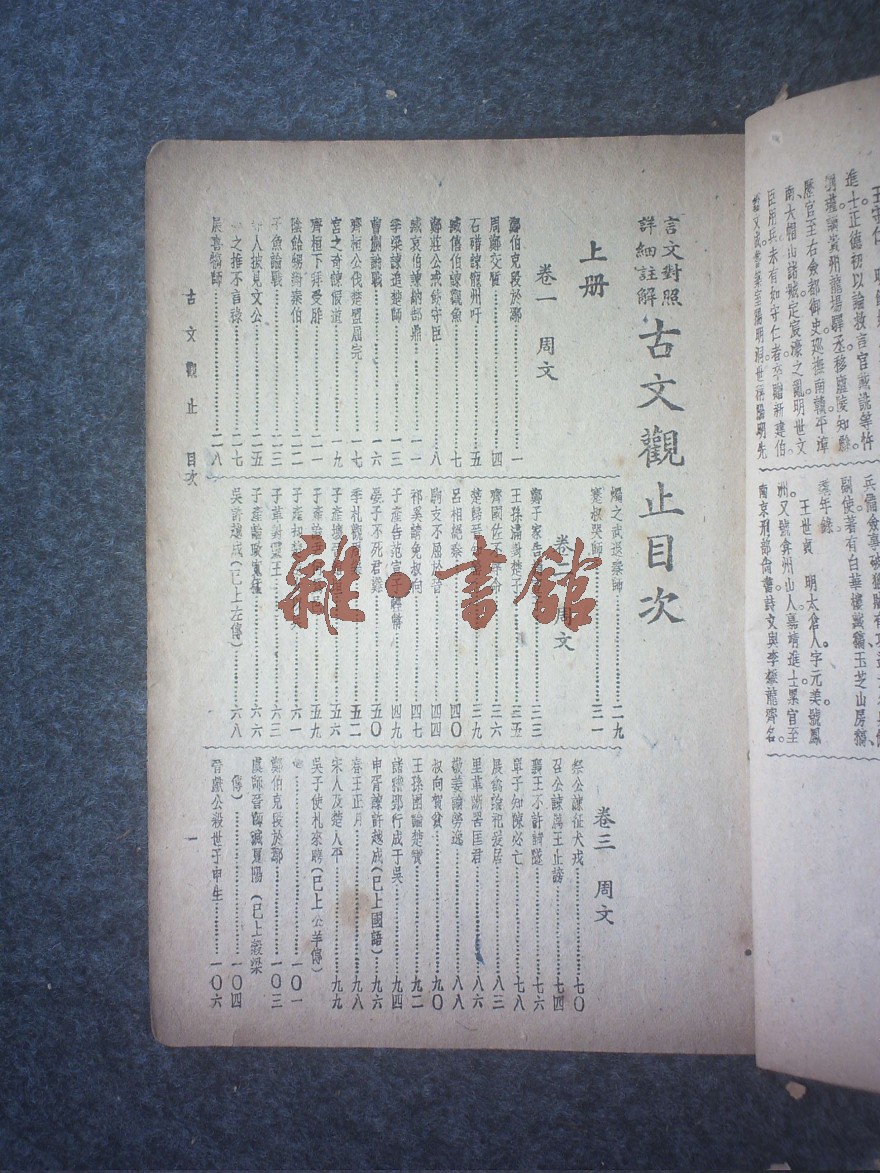 言文對照
詳細註解
古文觀止目次
上册
卷一 周文
鄭伯克段於鄢……一
周鄭交質……四
石碏諫寵州吁……五
臧僖伯諫觀魚……七
鄭莊公戒飭守臣……八
臧哀伯諫納郜鼎……一一
季梁諫追楚師……一三
曹劌論戰……一六
齊桓公伐楚盟屈完……一七
宮之奇諫假道……一九
齊桓下拜受胙……二一
陰飴甥對秦伯……二二
子魚論戰……二三
人披見文公……二五
之推不言祿……二七
展喜犒師……二八
燭之武退秦師……二九
蹇叔哭師……三一
卷二 周文
鄭子家告……三三
王孫滿對楚子……三五
齊國佐不辱命……三六
楚歸晉……三九
呂相絕秦……四〇
駒支不屈於晉……四四
祁奚請免叔向……四七
子產告范宣子輕幣……四九
晏子不死君難……五〇
季札觀……五二
子產壞……五六
子產論尹……五九
子產却楚……六一
子革對靈王……六三
子產論政寬猛……六六
吳許越成(已上左傳)……六八
卷三 周文
祭公諫征犬戎……七〇
召公諫厲王止謗……七四
襄王不許請隧……七六
單子知陳必亡……七八
展禽論祀爰居……八三
里革斷罟匡君……八六
敬姜論勞逸……八八
叔向賀貧……九〇
王孫圉論楚寶……九二
諸稽郢行成于吳……九四
申胥諫許越成(已上國語)……九六
春王正月……九八
宋人及楚人平……九九
吳子使札來聘(已上公羊傳)
……一〇一
鄭伯克段於鄢……一〇三
虞師晉師滅夏陽(已上穀梁
傳)……一〇四
晉獻公殺世子申生……一〇六
古文觀止 目次
一
雜·書館
進士正德初以論救言官戴銑等忤
劉瑾謫貴州龍場驛丞移廬陵知縣
歷官至右僉都御史巡撫南贛平漳
南、大帽山諸賊定宸濠之亂明世文
臣用兵未有如守仁者卒贈新建伯
諡文成嘗築室陽明洞世稱陽明先
副使著有白華樓藏稿玉芝山房稿
王世貞 明太倉人字元美號鳳
洲又號弇州山人嘉靖進士累官至
南京刑部尚書詩文與李攀龍齊名